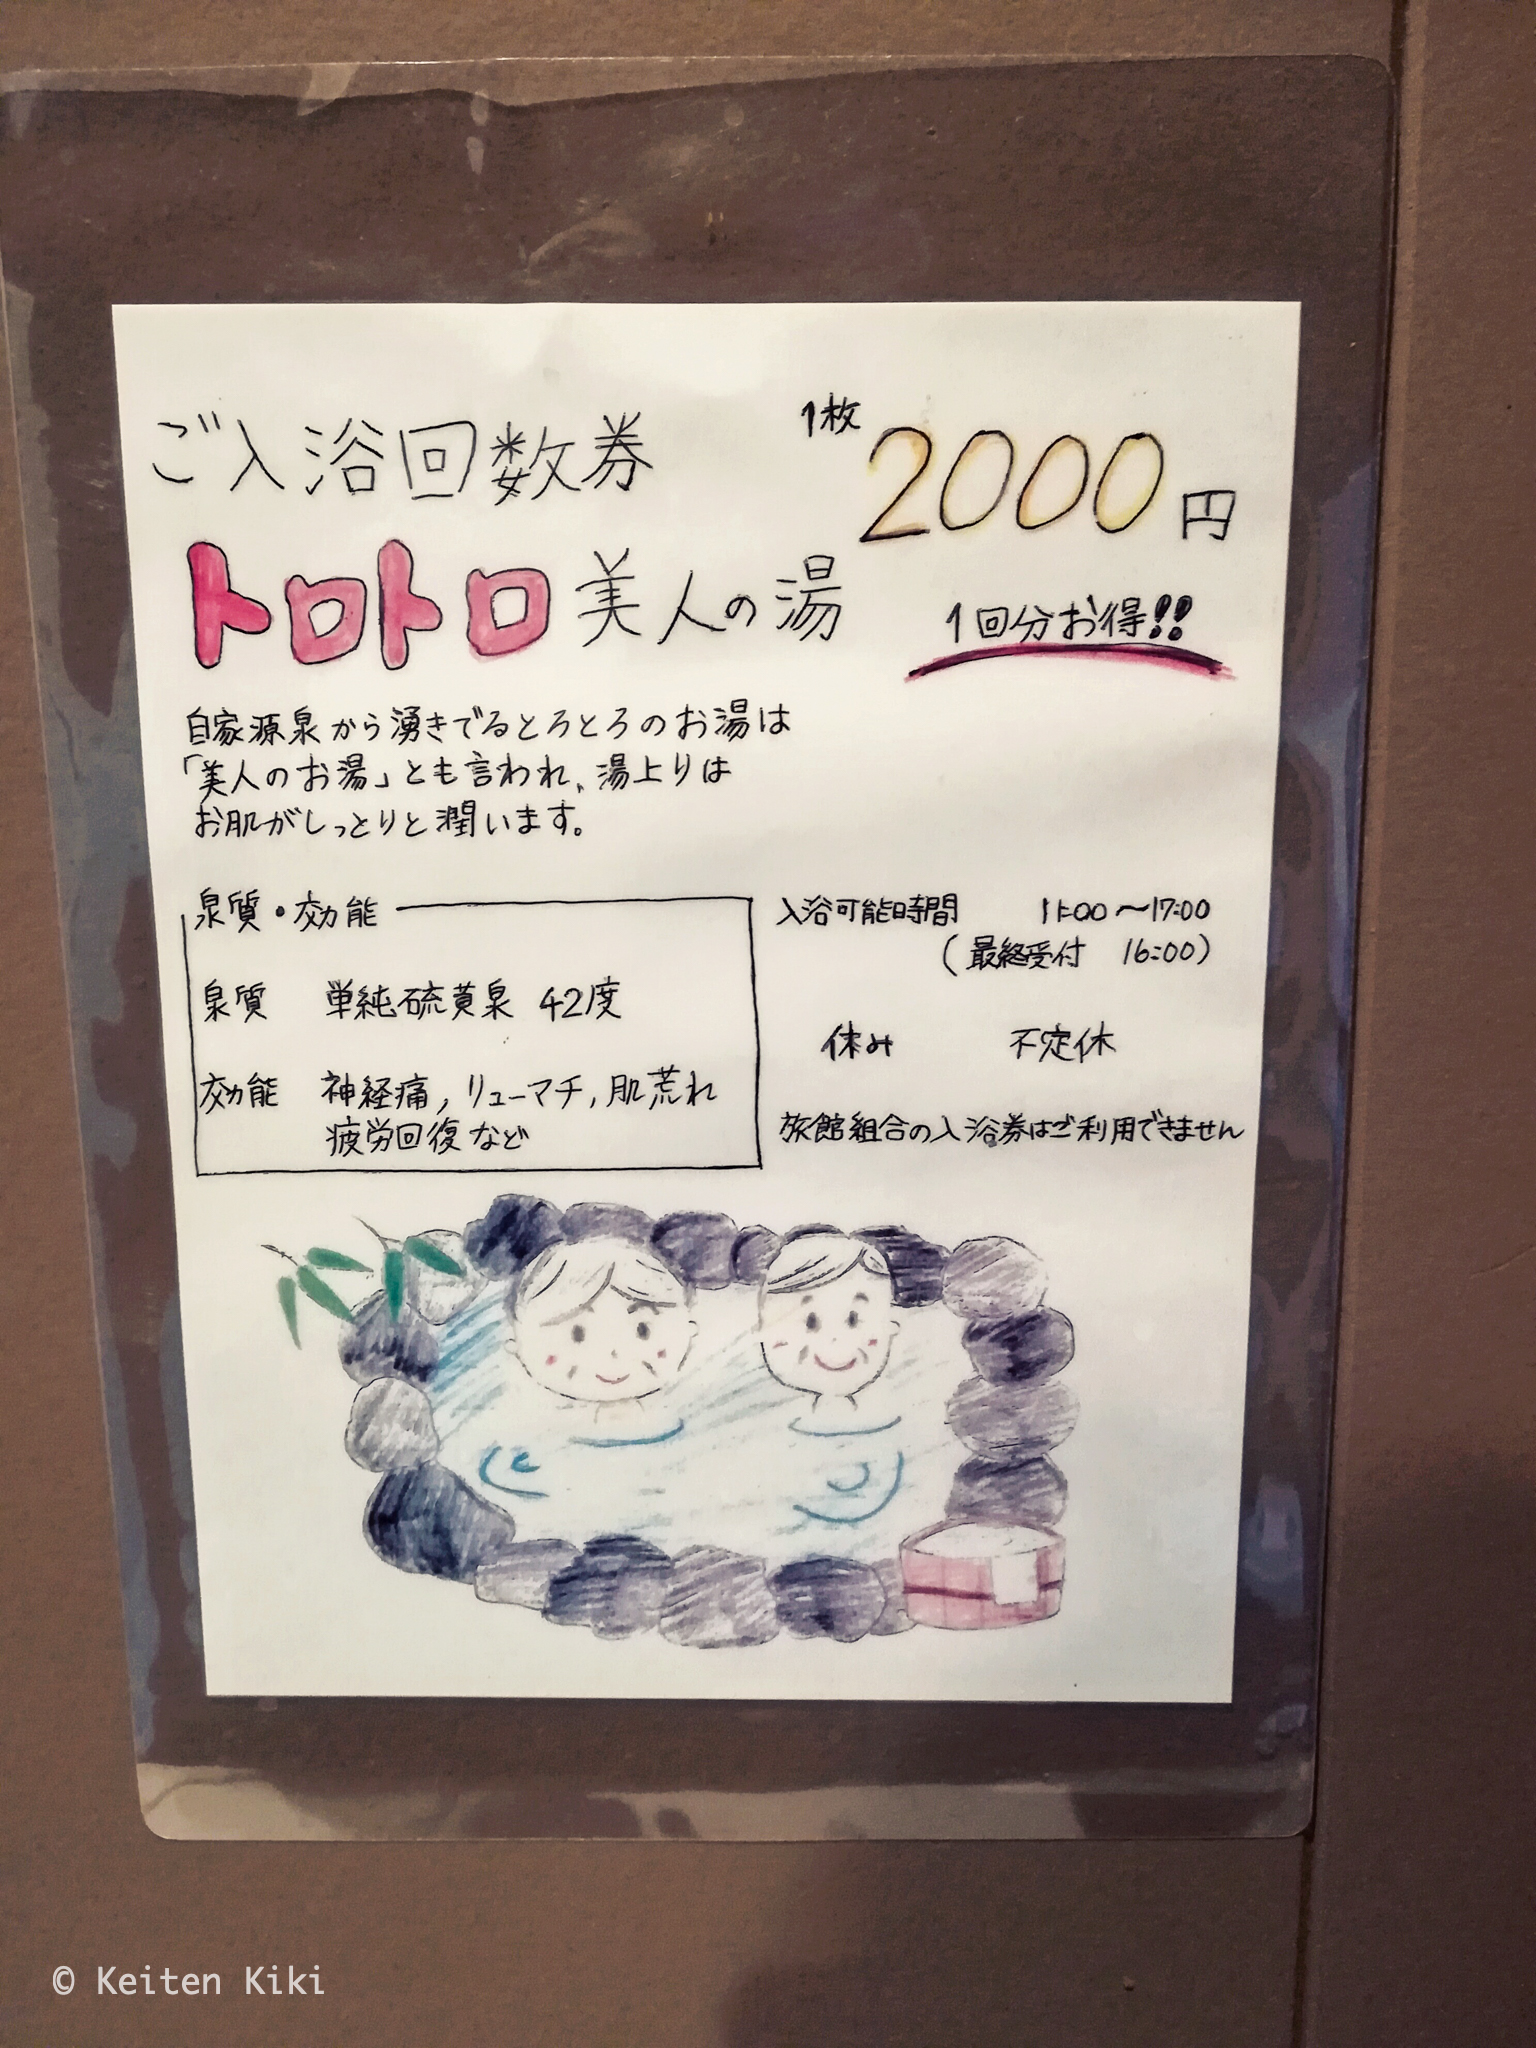 ご入浴回数券
1枚 2000円
トロトロ美人の湯
1回分お得!!
自家源泉から湧きでるとろとろのお湯は
「美人のお湯」とも言われ、湯上りは
お肌がしっとりと潤います。
泉質・効能
泉質 単純硫黄泉 42度
効能 神経痛,リューマチ,肌荒れ
疲労回復など
入浴可能時間 11:00〜17:00
(最終受付 16:00)
休み 不定休
旅館組合の入浴券はご利用できません
© Keiten Kiki